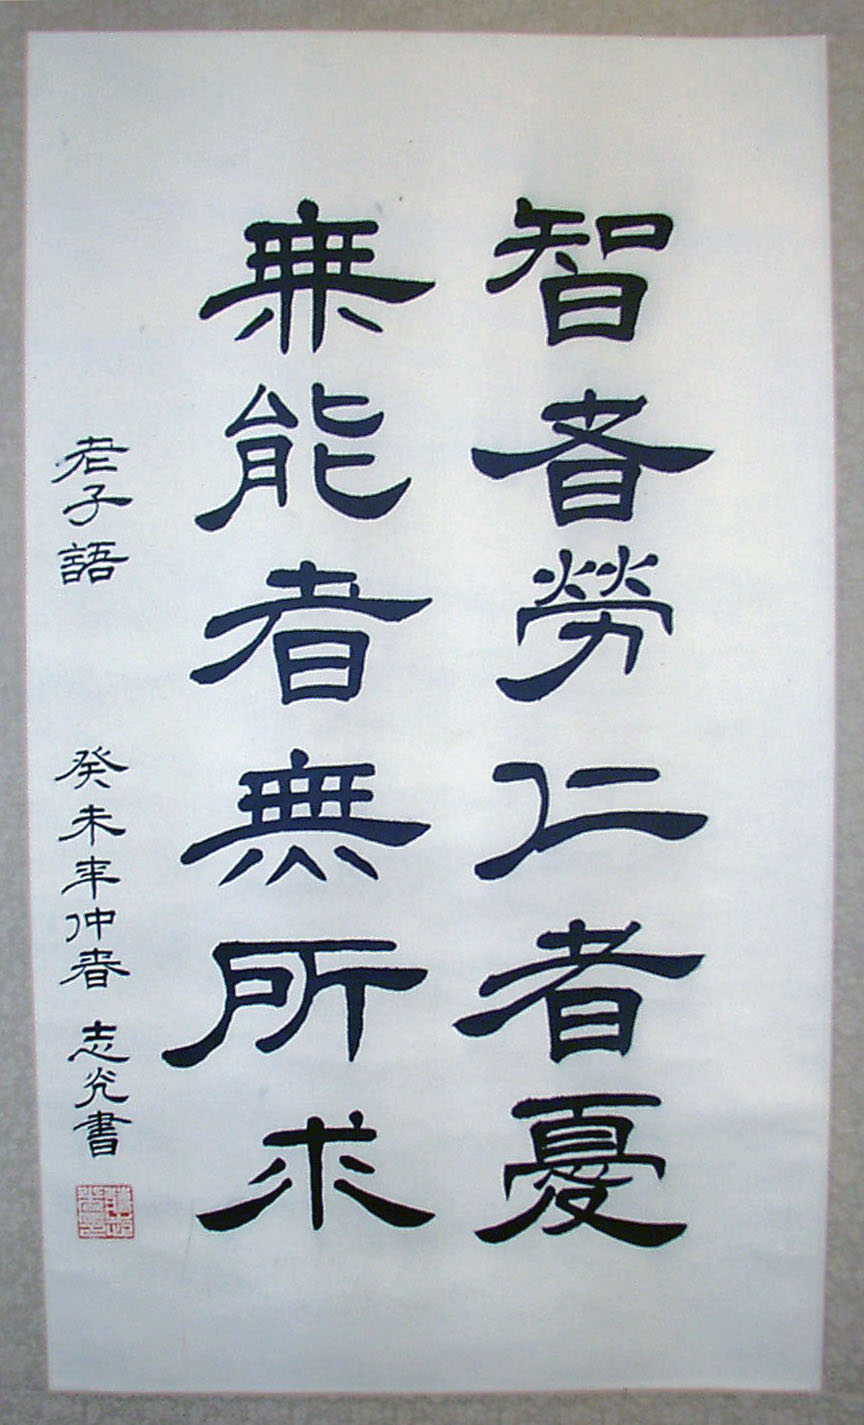 智者勞仁者憂
無能者無所求
老子語 癸未年仲春 志光書